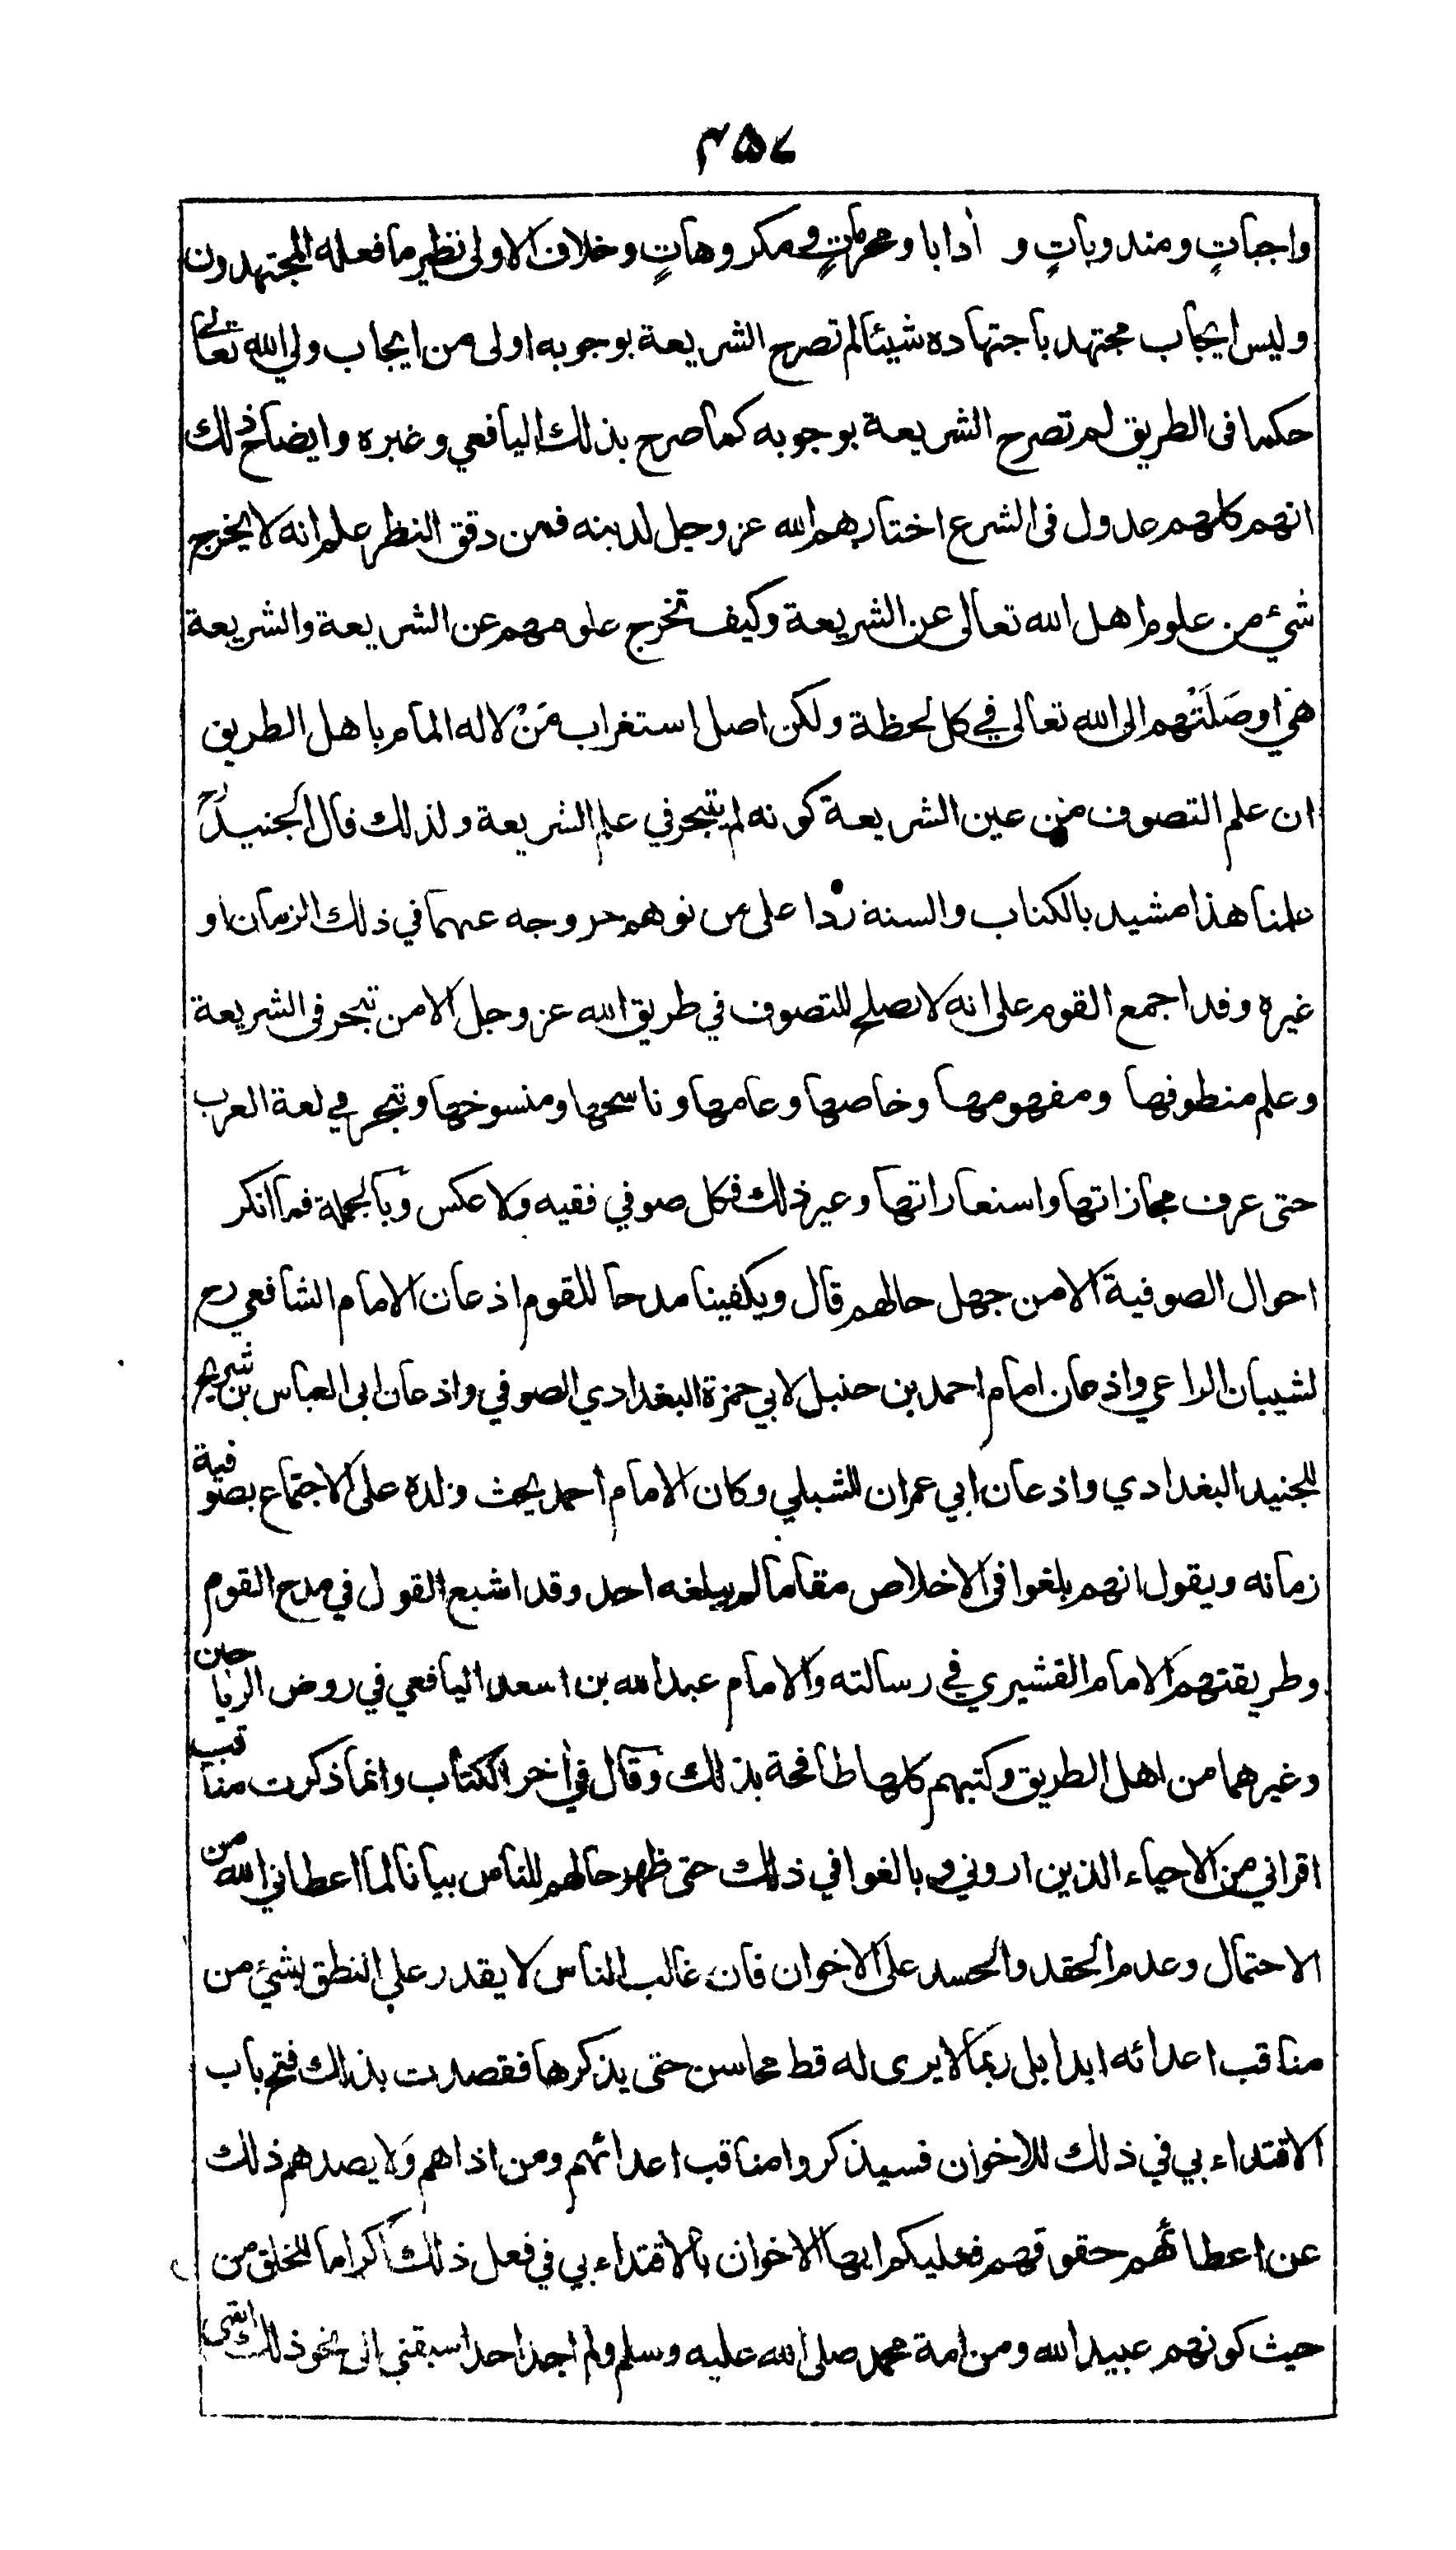 ۴۵۷
واجباتٍ ومندوباتٍ و أدابا ومحرماتٍ ومكروهاتٍ وخلاف الاولى نظير ما فعله المجتهدون
وليس ايجاب مجتهد باجتهاده شيئا لم تصرح الشريعة بوجوبه اولى من ايجاب ولي الله تعالى
حكما فى الطريق لم تصرح الشريعة بوجوبه كما صرح بذلك اليافعي وغيره وايضاح ذلك
انهم كلهم عدول فى الشرع اختارهم الله عز وجل لدينه فمن دقق النظر علم انه لا يخرج
شيء من علوم اهل الله تعالى عن الشريعة وكيف تخرج علومهم عن الشريعة والشريعة
هي اوصَلَتْهم الى الله تعالى في كل لحظة ولكن اصل استغراب مَنْ لا له المام باهل الطريق
ان علم التصوف من عين الشريعة كونه لم يتبحر في علم الشريعة ولذلك قال الجنيد رح
علمنا هذا مشيد بالكتاب والسنة ردا على من توهم خروجه عنهما في ذلك الزمان او
غيره وقد اجمع القوم على انه لا يصلح للتصوف في طريق الله عز وجل الا من تبحر فى الشريعة
وعلم منطوقها ومفهومها وخاصها وعامها وناسخها ومنسوخها وتبحر في لغة العرب
حتى عرف مجازاتها واستعاراتها وغير ذلك فكل صوفي فقيه ولا عكس وبالجملة فما انكر
احوال الصوفية الا من جهل حالهم قال ويكفينا مدحا للقوم اذعان الامام الشافعي رح
لشيبان الراعي واذعان امام احمد بن حنبل لابي حمزة البغدادي الصوفي واذعان ابى العباس بن شريح
للجنيد البغدادي واذعان ابي عمران للشبلي وكان الامام احمد يحث ولده على الاجتماع بصوفية
زمانه ويقول انهم بلغوا فى الاخلاص مقاما لم يبلغه احد وقد اشبع القول في مدح القوم
وطريقتهم الامام القشيري في رسالته والامام عبد الله بن اسعد اليافعي في روض الرياحين
وغيرهما من اهل الطريق وكتبهم كلها طافحة بذلك وقال في أخر الكتاب وانما ذكرت مناقب
اقراني من الاحياء الذين اروني وبالغوا في ذلك حتى ظهر حالهم للناس بيانا لما اعطاني الله من
الاحتمال وعدم الحقد والحسد على الاخوان فان غالب الناس لا يقدر علي النطق بشيء من
مناقب اعدائه ابدا بل ربما لا يرى له قط محاسن حتى يذكرها فقصدت بذلك فتح باب
الاقتداء بي في ذلك للاخوان فسيذكروا مناقب اعدائهم ومن اذاهم ولا يصدهم ذلك
عن اعطائهم حقوقهم فعليكم ايها الاخوان بالاقتداء بي في فعل ذلك اكراما للخلق من
حيث كونهم عبيد الله ومن امة محمد صلى الله عليه وسلم ولم اجد احدا سبقني الى نحو ذلك انتهى